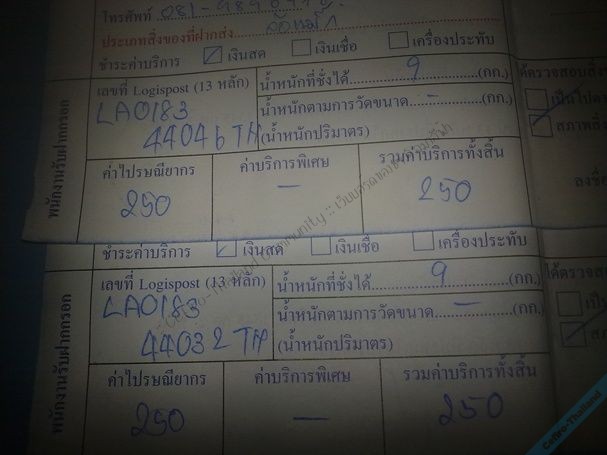 โทรศัพท์ 081-989
ประเภทสิ่งของที่ฝากส่ง
ชำระค่าบริการ เงินสด เงินเชื่อ เครื่องประทับ
พนักงานรับฝากกรอก
เลขที่ Logispost (13 หลัก) น้ำหนักที่ชั่งได้ 9 (กก.) ได้ตรวจสอบสิ่ง
LA0183 น้ำหนักตามการวัดขนาด - (กก.) เป็นไปตาม
44046 TH (น้ำหนักปริมาตร) สภาพสิ่ง
ค่าไปรษณียากร ค่าบริการพิเศษ รวมค่าบริการทั้งสิ้น
250 - 250
ลงชื่อ
ชำระค่าบริการ เงินสด เงินเชื่อ เครื่องประทับ
พนักงานรับฝากกรอก
เลขที่ Logispost (13 หลัก) น้ำหนักที่ชั่งได้ 9 (กก.) ได้ตรวจสอ
LA0183 น้ำหนักตามการวัดขนาด - (กก.) เป็น
44032 TH (น้ำหนักปริมาตร) สภา
ค่าไปรษณียากร ค่าบริการพิเศษ รวมค่าบริการทั้งสิ้น
250 - 250
Cefiro-Thailand